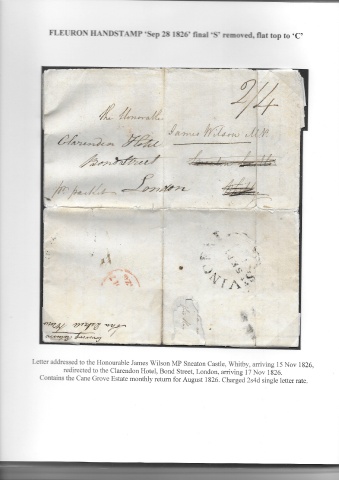 FLEURON HANDSTAMP ‘Sep 28 1826’ final ‘S’ removed, flat top to ‘C’
2/4
The Honorable
James Wilson M.P.
Clarendon Hotel
Bond Street
pr packet London
Letter addressed to the Honourable James Wilson MP Sneaton Castle, Whitby, arriving 15 Nov 1826,
redirected to the Clarendon Hotel, Bond Street, London, arriving 17 Nov 1826.
Contains the Cane Grove Estate monthly return for August 1826. Charged 2s4d single letter rate.